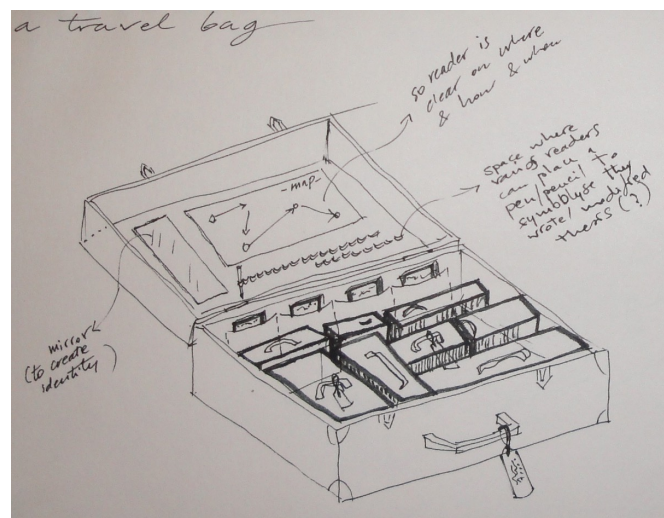 a travel bag
so reader is
clear on where
& how & when
space where
readers
can place
pen/pencil to
symbolyse they
wrote/modified
thesis (?)
-map-
mirror
(to create
identity)